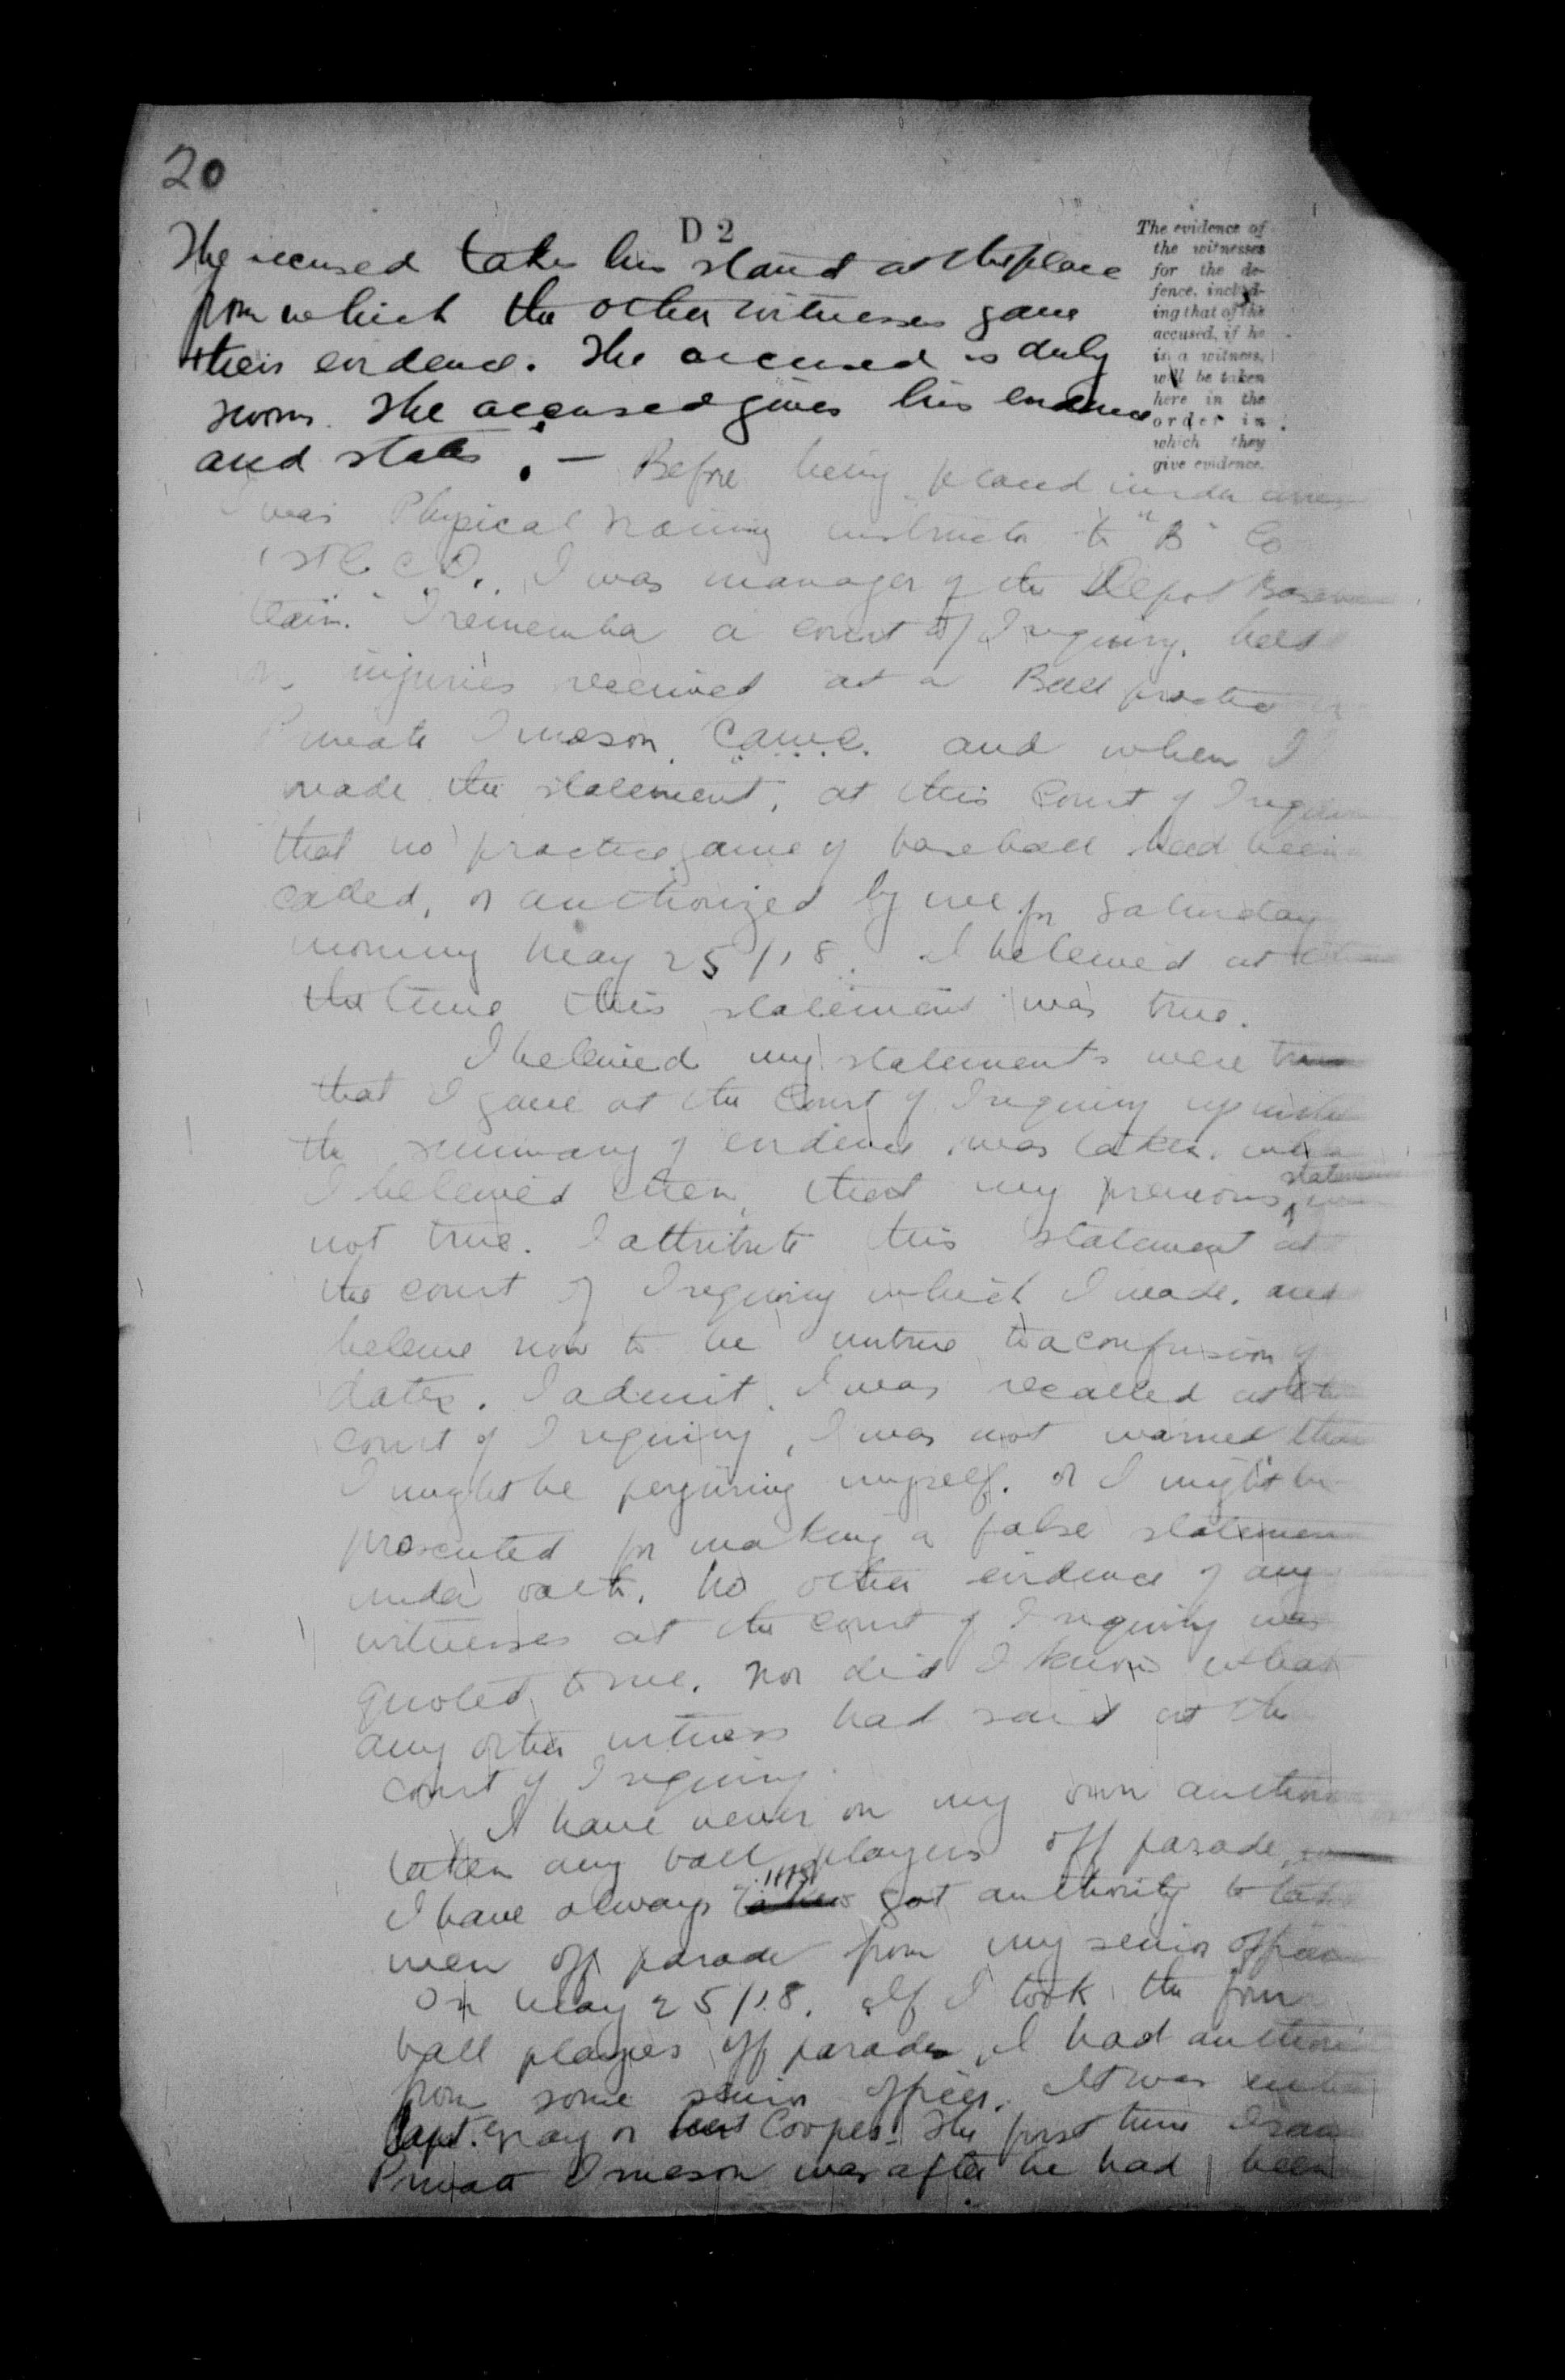 20
D 2
The evidence of
the witnesses
for the de-
fence, includ-
ing that of the
accused, if he
is a witness,
will be taken
here in the
order in
which they
give evidence.
The accused takes his stand at the place
from which the other witnesses gave
their evidence. The accused is duly
sworn. The accused gives his evidence
and states. — Before being placed under
I was Physical Training instructor to "B" Co
1st C.O.. I was manager of the Depot
team. I remember a court of Inquiry, held
on injuries received at a Ball practice
Private Imeson C.A.M.C. and when I
made the statement, at this Court of
that no practice game of baseball had been
called, or authorized by me for Saturday
morning May 25/18. I beleived at
the time this statement was true.
I beleived my statements were true
that I gave at the Court of Inquiry
the summary of evidence was taken, when
I beleived then, that my previous statement
not true. I attribute this statement at
the court of Inquiry which I made, and
beleive now to be untrue to a confusion of
dates. I admit. I was recalled at the
court of Inquiry, I was not warned that
I might be perjuring myself. or I might be
prosecuted for making a false statement
under oath. No other evidence of any
witnesses at the Court of Inquiry was
quoted to me. Nor did I know what
any other witness had said at the
court of Inquiry.
I have never on my own
taken any ball players off parade
I have always taken got authority to take
men off parade from my senior officer
On May 25/18. If I took the four
ball players off parade, I had
from some senior officer. It was
Capt. Gray or Lieut Cooper. The first time I saw
Private Imeson was after he had been